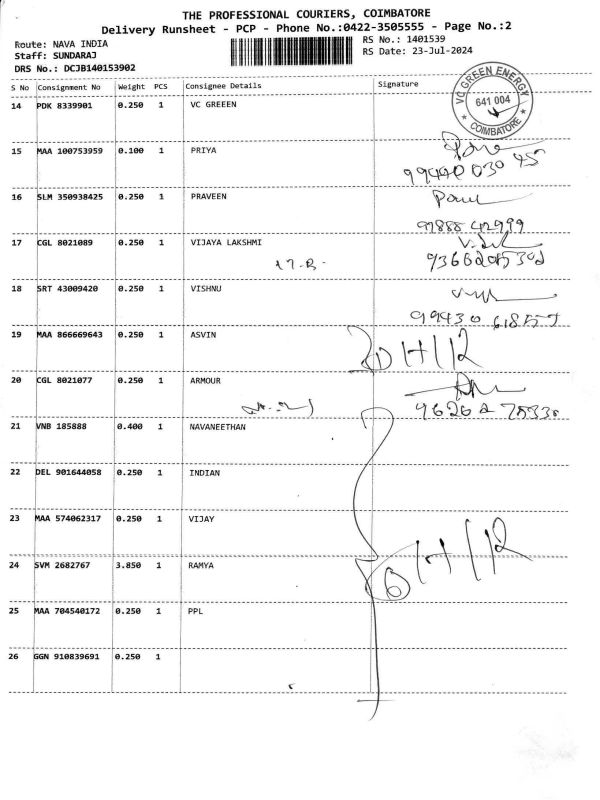 THE PROFESSIONAL COURIERS, COIMBATORE
Delivery Runsheet - PCP - Phone No.:0422-3505555 - Page No.:2
Route: NAVA INDIA
RS No.: 1401539
Staff: SUNDARAJ
RS Date: 23-Jul-2024
DRS No.: DCJB140153902
S No Consignment No Weight PCS Consignee Details Signature
VC GREEN ENERGY
641 004
COIMBATORE
14 PDK 8339901 0.250 1 VC GREEEN
15 MAA 100753959 0.100 1 PRIYA
16 SLM 350938425 0.250 1 PRAVEEN
17 CGL 8021089 0.250 1 VIJAYA LAKSHMI
18 SRT 43009420 0.250 1 VISHNU
19 MAA 866669643 0.250 1 ASVIN
20 CGL 8021077 0.250 1 ARMOUR
21 VNB 185888 0.400 1 NAVANEETHAN
22 DEL 901644058 0.250 1 INDIAN
23 MAA 574062317 0.250 1 VIJAY
24 SVM 2682767 3.850 1 RAMYA
25 MAA 704540172 0.250 1 PPL
26 GGN 910839691 0.250 1